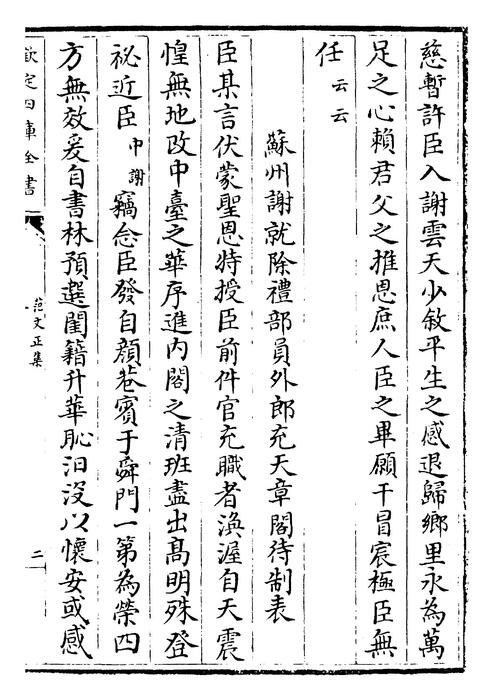 慈暫許臣入謝雲天少敘平生之感退歸鄉里永為萬
足之心賴君父之推恩庶人臣之畢願干冒宸極臣無
任云云
蘇州謝就除禮部員外郎充天章閣待制表
臣某言伏蒙聖恩特授臣前件官充職者渙渥自天震
惶無地改中臺之華序進內閣之清班盡出髙明殊登
祕近臣中謝竊念臣發自顔巷賓于舜門一第為榮四
方無效爰自書林預選閨籍升華恥汩沒以懷安或感
欽定四庫全書
范文正集
二